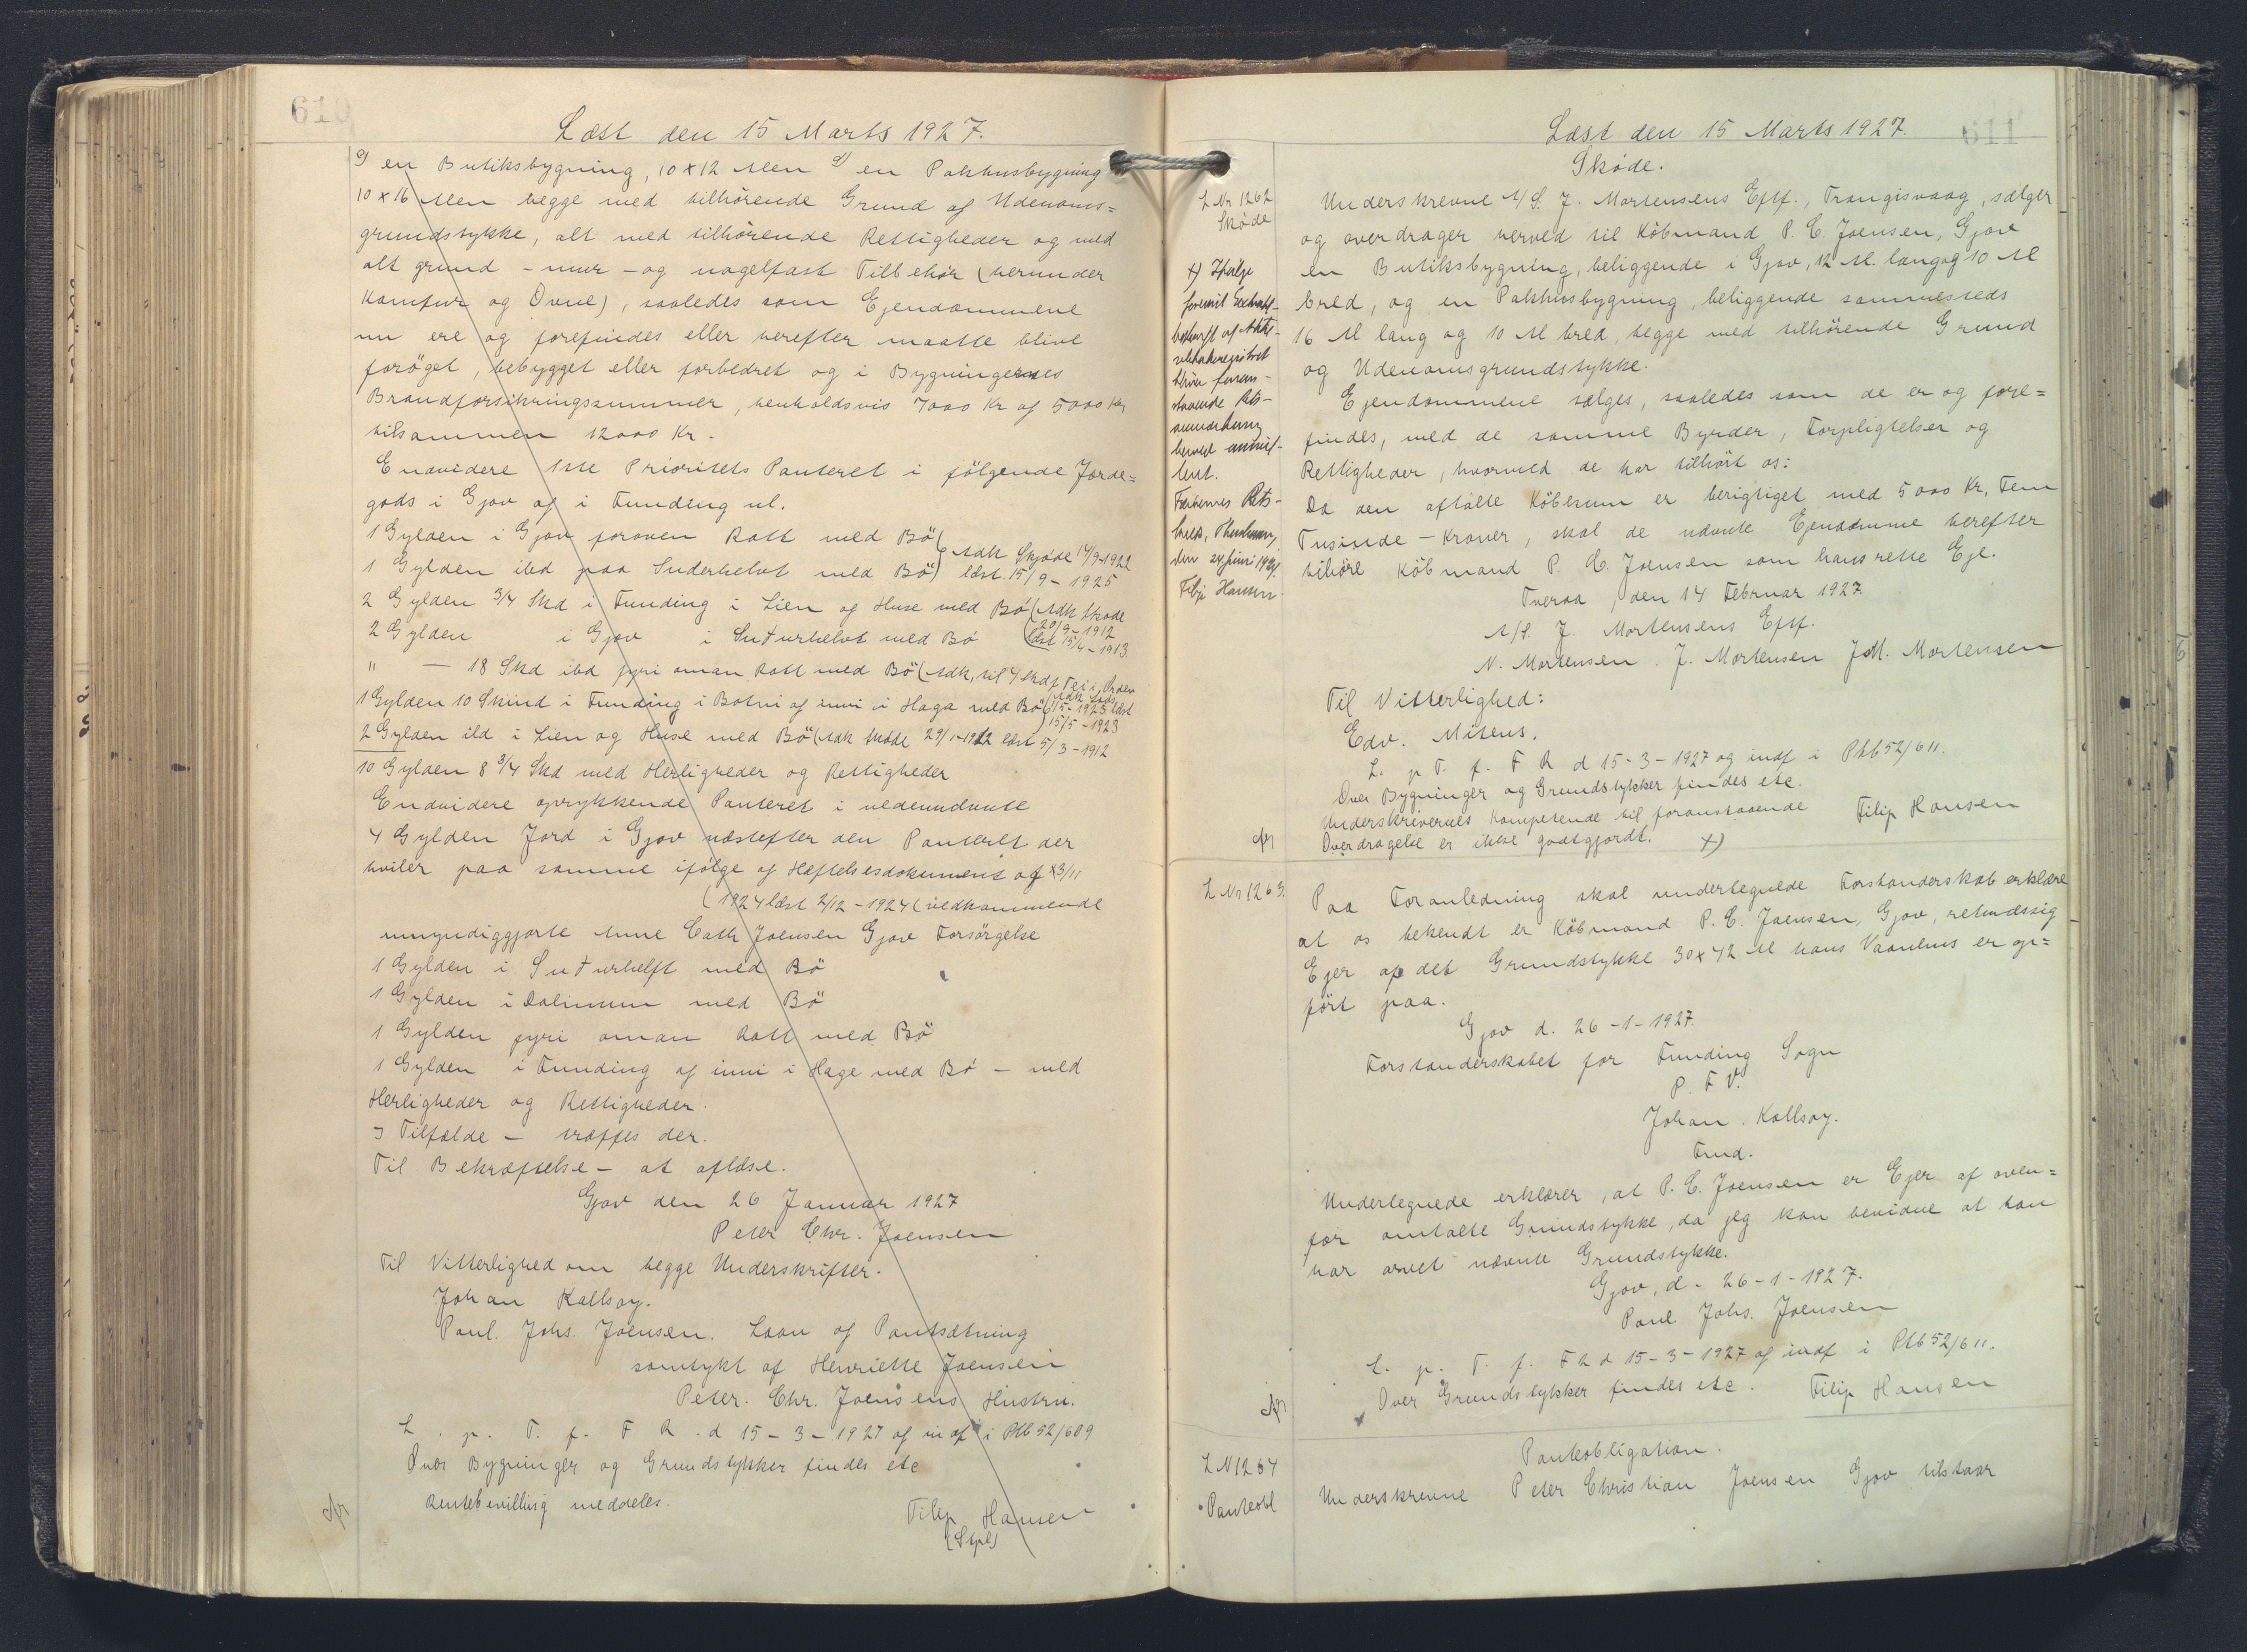 610
Læst den 15 Marts 1927.
en Butiksbygning, 10 x 12 Alen en Pakhusbygning
10 x 16 Alen begge med tilhørende Grund og Udenoms=
grundstykke, alt med tilhørende Rettigheder og med
alt grund - mur - og nagelfast Tilbehør (herunder
Komfur og Ovne), saaledes som Ejendommene
nu ere og forefindes eller herefter maatte blive
forøget, bebygget eller forbedret og i Bygningernes
Brandforsikringssummer, henholdsvis 7000 Kr og 5000 Kr
tilsammen 12000 Kr.
Endvidere 1ste Prioritets Panteret i følgende Jorde=
gods i Gjov og i Funding nl.
1 Gylden i Gjov foroven Ratt med Bø
1 Gylden ibd paa Suderhelvt med Bø) Adk Skjøde 14/9-1922
læst. 15/9 - 1925
2 Gylden 3/4 Skd i Funding i Lien og Huse med Bø (Adk Skøde
20/9 - 1912
2 Gylden i Gjov i Suðurhelvt med Bø læst 15/4 - 1913.
" — 18 Skd ibd fyri oman Ratt med Bø (Adk, til 4 Skd
1 Gylden 10 Skind i Funding i Botni og inni i Haga med Bø
1/5 - 1923 læst
15/5 - 1923
2 Gylden ibd i Lien og Huse med Bø (Adk Skøde 29/1-1912 læst 5/3 - 1912
10 Gylden 8 3/4 Skd med Herligheder og Rettigheder
Endvidere oprykkende Panteret i nedennævnte
4 Gylden Jord i Gjov næstefter den Panteret der
hviler paa samme ifølge af Hæftelsesdokument af 3/11
(1924 læst 2/12 - 1924 (vedkommende
umyndiggjorte Anne Cath Joensen Gjov Forsørgelse
1 Gylden i Suðurhelft med Bø
1 Gylden i Dalinum med Bø
1 Gylden fyri oman Ratt med Bø
1 Gylden i Funding og inni i Hage med Bø - med
Herligheder og Rettigheder.
I Tilfælde - træffes der.
Til Bekræftelse - at aflæse.
Gjov den 26 Januar 1927
Peter Chr. Joensen
Til Vitterlighed om begge Underskrifter.
Johan Kallsoy.
Poul. Johs. Joensen. Laan og Pantsætning
samtykt af Henriette Joensen
Peter. Chr. Joensens Hustru.
L. p. T. f. F R. d 15 - 3 - 1927 og indf i Ptb 52/609
Over Bygninger og Grundstykker findes etc
Rentebevilling meddeles.
Filip Hansen
(Stpl)
611
Læst den 15 Marts 1927.
Skøde.
L Nr 1262
Skøde
Underskrevne A/S. J. Mortensens Eftf., Trangisvaag, sælger
og overdrager herved til Købmand P. C. Joensen, Gjov
en Butiksbygning, beliggende i Gjov, 12 Al. lang og 10 Al
bred, og en Pakhusbygning, beliggende sammesteds
16 Al lang og 10 Al bred, begge med tilhørende Grund
og Udenomsgrundstykke.
Ejendommene sælges, saaledes som de er og fore=
findes, med de samme Byrder, Forpligtelser og
Rettigheder, hvormed de har tilhørt os:
Da den aftalte Købesum er berigtiget med 5000 Kr, Fem
Tusinde - Kroner, skal de nævnte Ejendomme herefter
tilhøre Købmand P. C. Joensen som hans rette Eje.
Tveraa, den 14 Februar 1927.
A/S. J. Mortensens Eftf.
N. Mortensen. J. Mortensen J M. Mortensen
Til Vitterlighed:
Edv. Mitens.
L. p T. f. F R d 15 - 3 - 1927 og indf i Ptb 52/611.
Over Bygninger og Grundstykker findes etc.
Underskrivernes Kompetence til foranstaaende Filip Hansen
Overdragelse er ikke godtgjordt. x)
x) Ifølge
forevist
af Aktie-
foran-
staaende Rets-
anmærkning
herved annul-
leret.
Færøernes Rets-
kreds, Thorshavn,
Filip Hansen
L Nr 1263.
Paa Foranledning skal undertegnede Forstanderskab erklære
at os bekendt er Købmand P. C. Joensen, Gjov, retmæssig
Ejer af det Grundstykke 30 x 42 Al hans Vaanhus er op=
ført paa.
Gjov d. 26 - 1 - 1927.
Forstanderskabet for Funding Sogn
P. F V.
Johan. Kallsoy.
Fmd.
Undertegnede erklærer, at P. C. Joensen er Ejer af oven=
for omtalte Grundstykke, da jeg kan bevidne at han
har arvet nævnte Grundstykke.
Gjov, d. 26 - 1 - 1927.
Poul Johs. Joensen
L. p. T. f. F R d 15 - 3 - 1927 og indf i Ptb 52/611.
Over Grundstykker findes etc. Filip Hansen
L N 1264
Panteobl
Panteobligation.
Underskrevne Peter Christian Joensen Gjov tilstaar